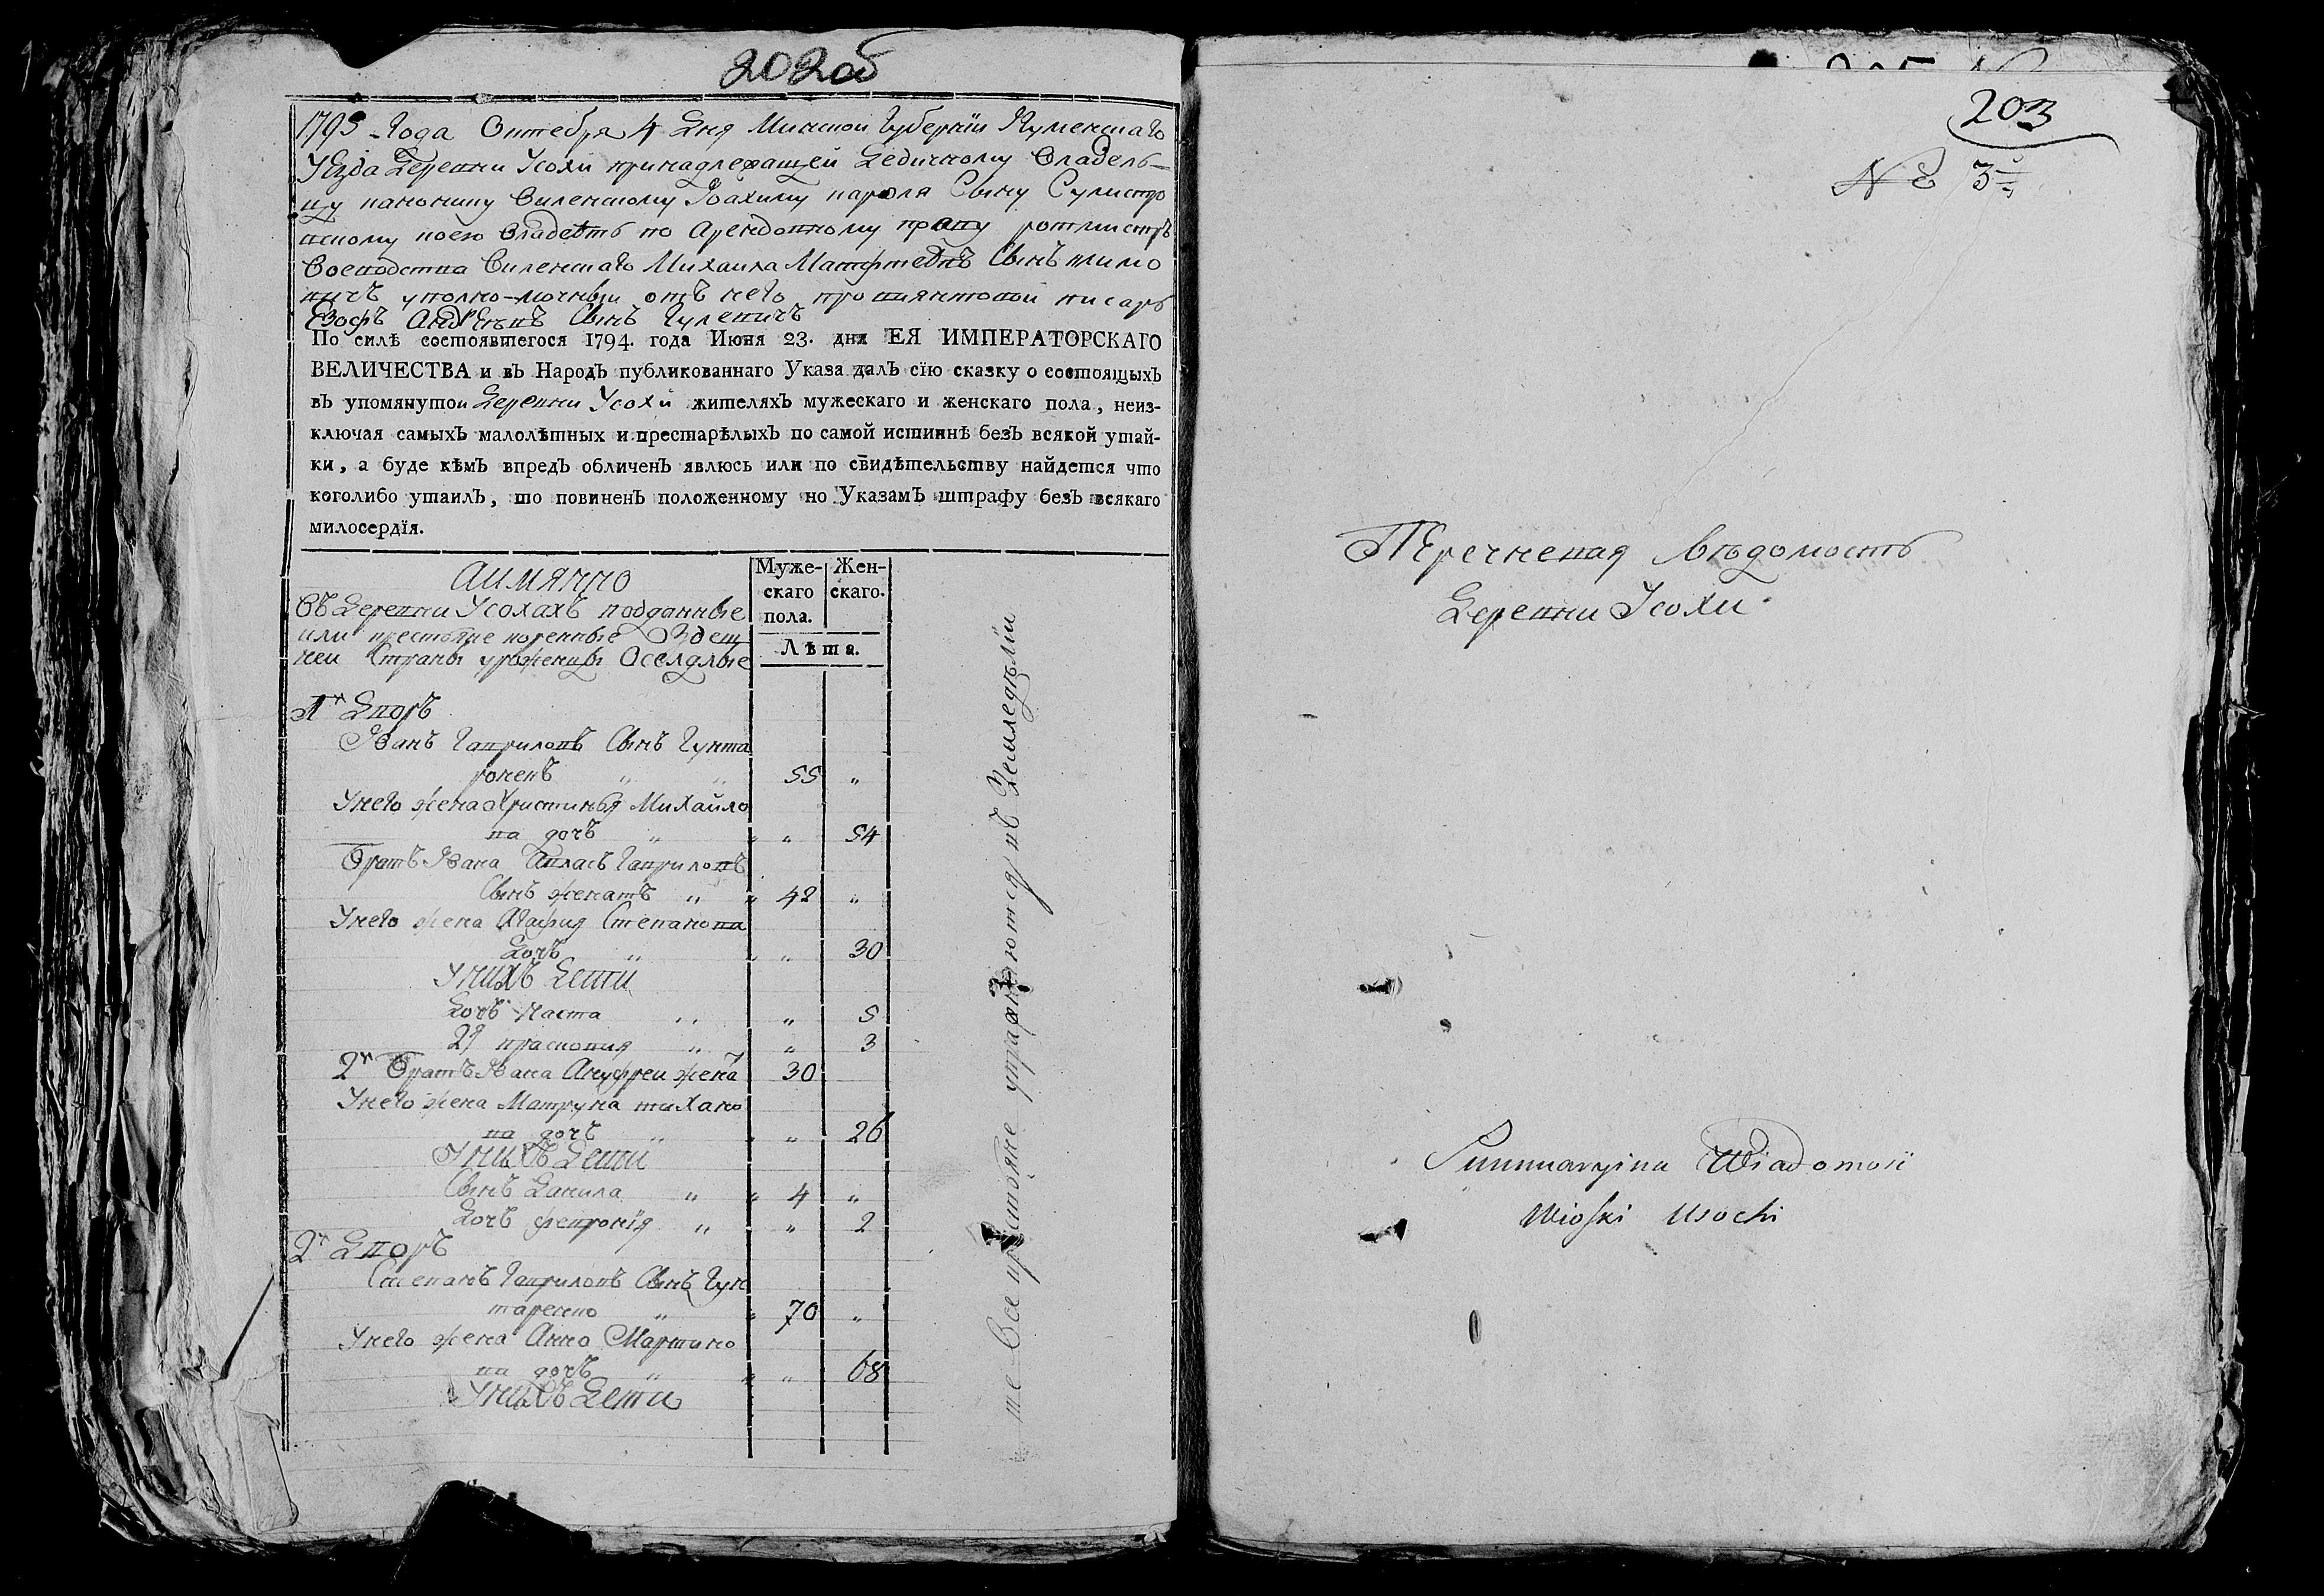 202об
1795 Года Октебра 4 Дня Минской Губернїи Игуменскаго
уезда деревни Усохи принадлежащей Едичному владель-
цу канонику виленскому Иоахиму карола Сыну Сулистро
вскому коею владееть по арендовному праву ротмистръ
воеводства виленскаго Михаила Матфтеевъ Сынъ климо
вичъ уполно-мочный отъ него провиянтовой писарь
Езофъ Андреевъ Сынъ Гулевичъ
По силѣ состоявшегося 1794. года Июня 23. дня ЕЯ ИМПЕРАТОРСКАГО
ВЕЛИЧЕСТВА и въ Народъ публикованнаго Указа далъ сїю сказку о состоящыхъ
въ упомянутои деревни Усохи жителяхъ мужескаго и женскаго пола, неиз-
ключая самыхъ малолѣтных и престарѣлыхъ по самой истиннѣ безъ всякой утай-
ки, а буде кѣмъ впредь обличенъ явлюсь или по свидѣтельству найдется что
коголибо утаилъ, то повиненъ положенному по Указамъ штрафу безъ всякаго
милосердїя.
аимянно
Муже-
скаго
пола.
Жен-
скаго.
Лѣта.
въ деревни Усохахъ подданные
или крестьяне коренные Здеш
неи Страны уроженцы Оселдлые
1й Дворъ
Иванъ Гавриловъ Сынъ Гунта
ровецъ " " 55 "
У него жена Христинья Михайло
ва дочъ " " " 54
Братъ Ивана Авласъ Гавриловъ
Сынъ женатъ " " 42 "
У него жена Агафия Степанова
Дочъ " " " 30
У нихъ Дети
Дочъ Наста " " 5
2я прасковия " " 3
2й Братъ Ивана Ануфреи жена 30
У него жена Матруна тихано
ва дочъ " " " 26
У нихъ Дети
Сынъ Данила " " 4 "
Дочъ феврония " " 2
2й Дворъ
Степанъ Гавриловъ Сынъ Гун
таренко " " 70 "
У него жена Анна Мартино
ва дочъ " " " 68
У нихъ Дети
те все крестьяне упражняются въ Земледелїи
203
№ 3
Перечневая Ведомость
Деревни Усохи
Summaryina Wiadomosi
Wioski Usochi